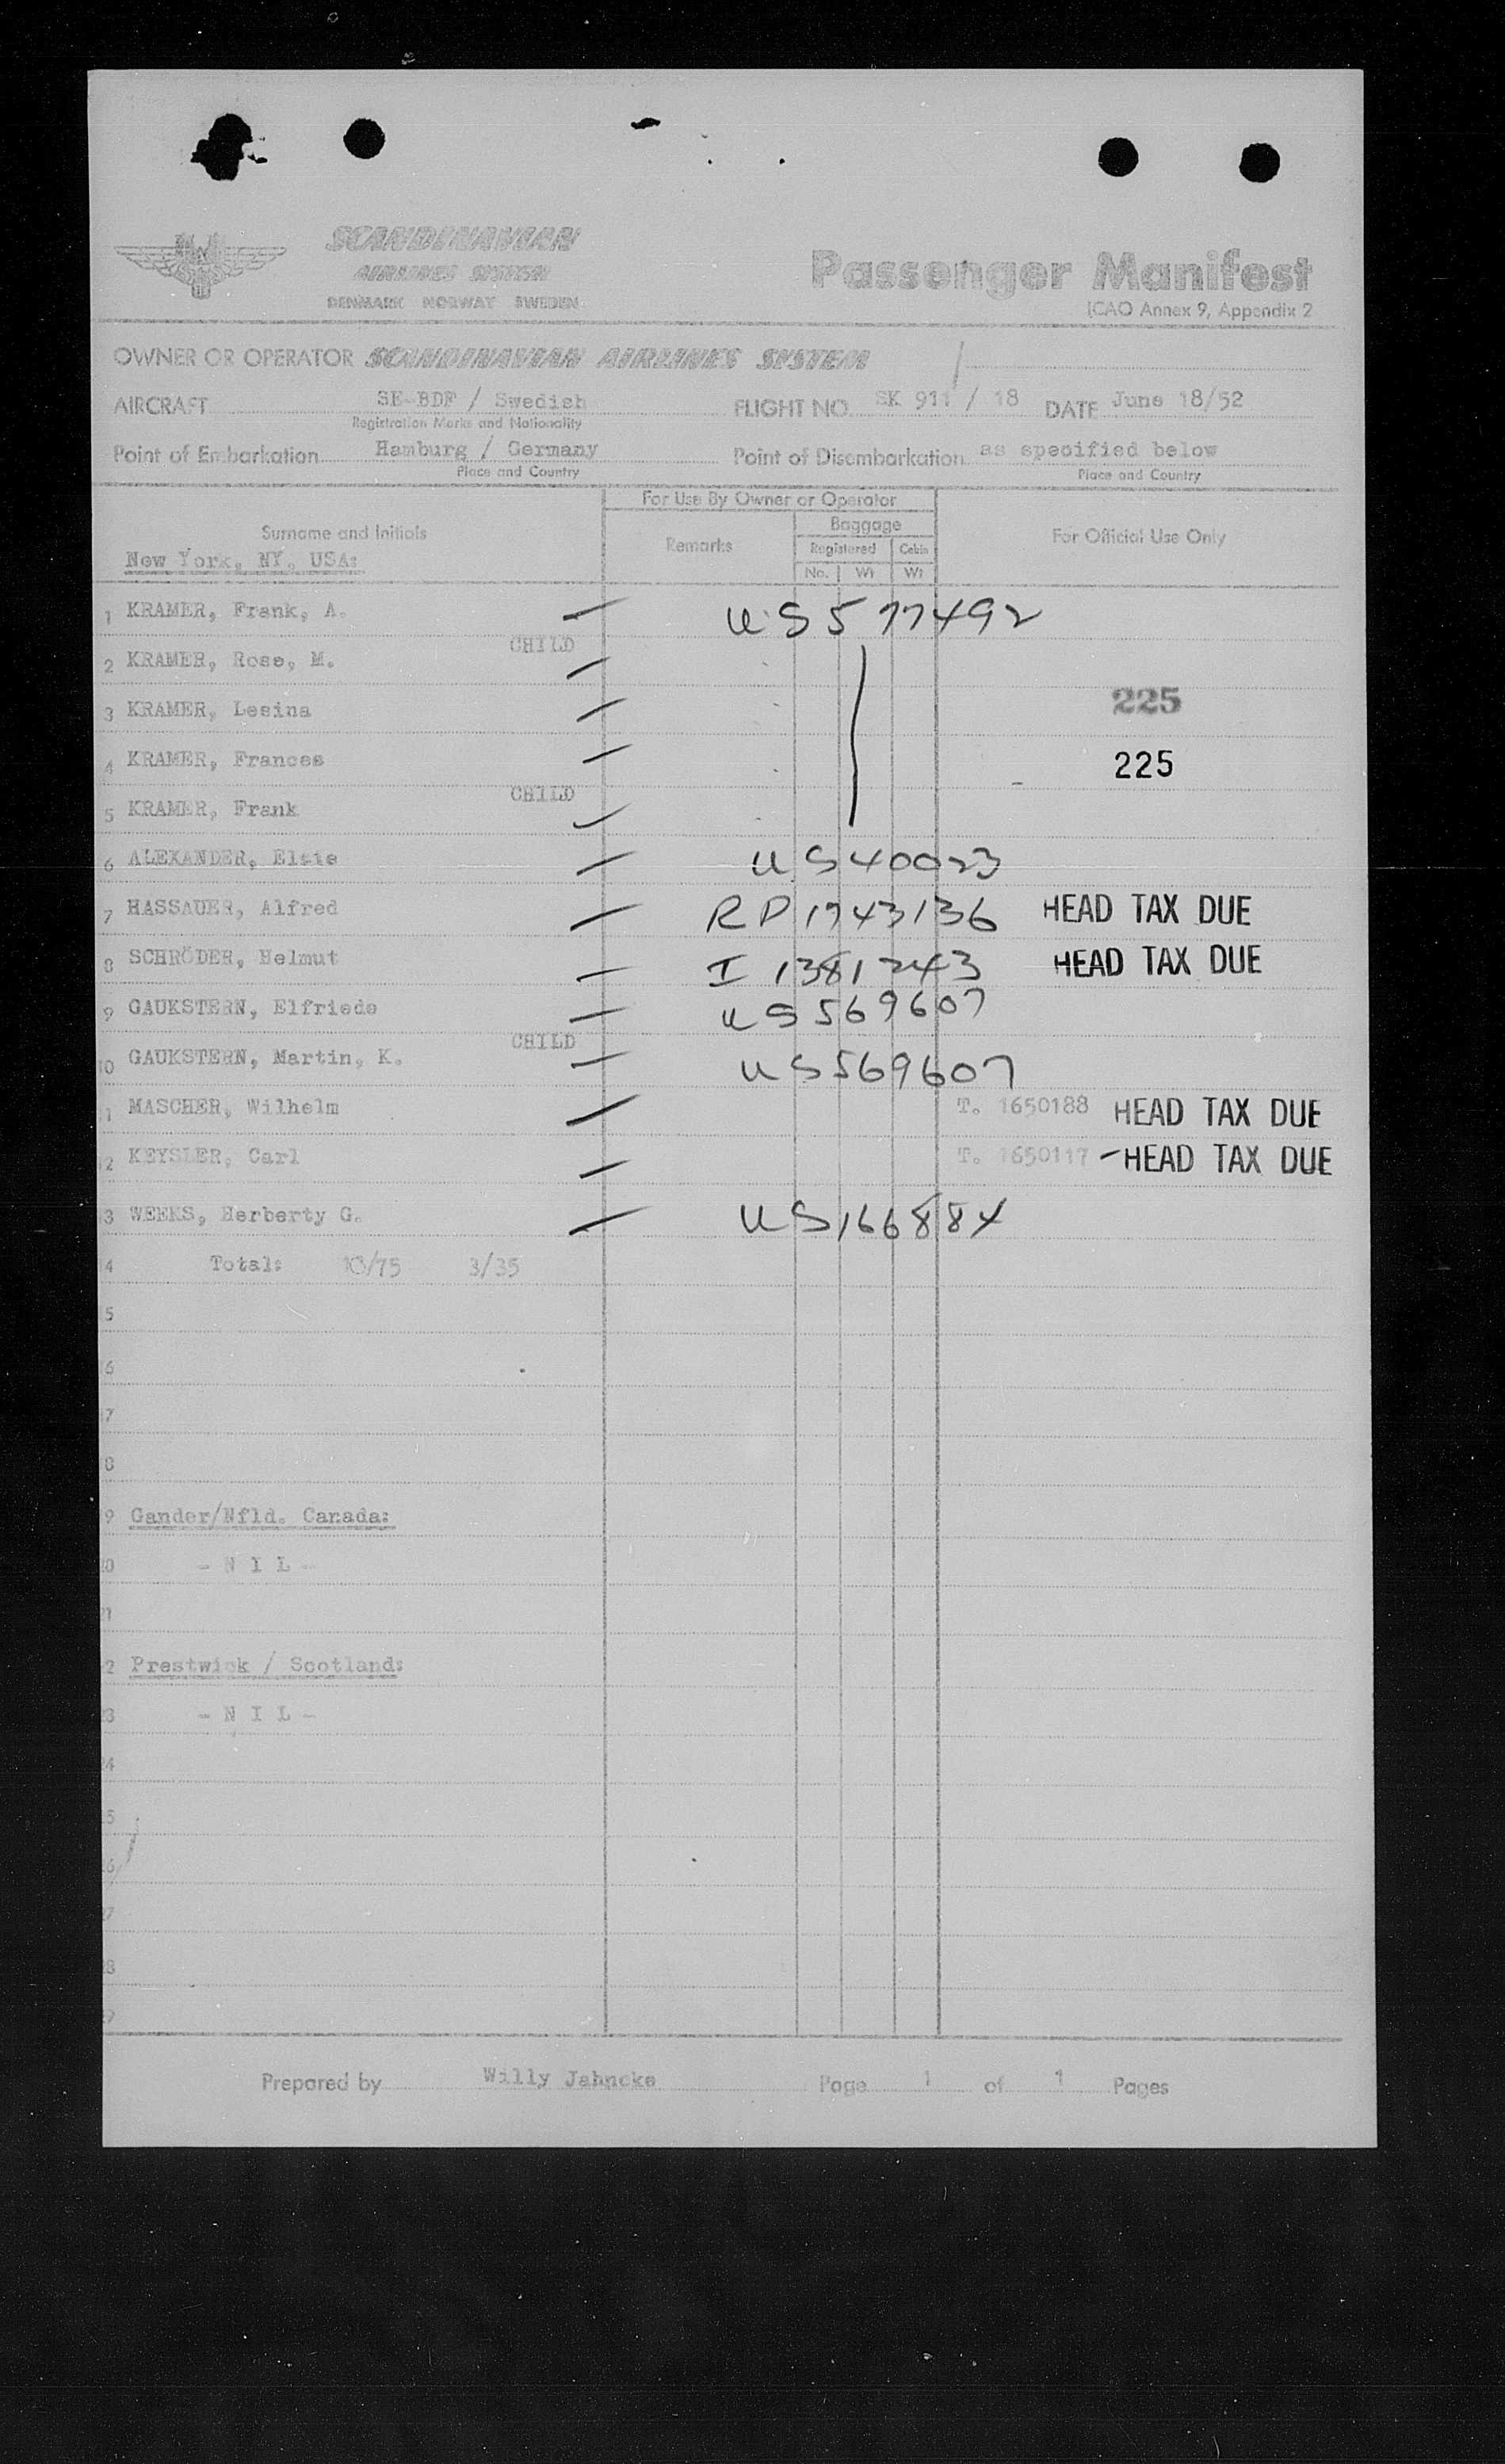 SCANDINAVIAN
AIRLINES SYSTEM
DENMARK NORWAY SWEDEN
Passenger Manifest
ICAO Annex 9, Appendix 2
OWNER OR OPERATOR SCANDINAVIAN AIRLINES SYSTEM
AIRCRAFT SE-BDF / Swedish FLIGHT NO. SK 911 / 18 DATE June 18/52
Registration Marks and Nationality
Point of Embarkation Hamburg / Germany Point of Disembarkation as specified below
Place and Country Place and Country
For Use By Owner or Operator
Surname and Initials Remarks Baggage For Official Use Only
Registered Cabin
New York, NY, USA:
No. Wt Wt
1 KRAMER, Frank, A. US 577492
CHILD
2 KRAMER, Rose, M.
3 KRAMER, Lesina 225
4 KRAMER, Frances 225
CHILD
5 KRAMER, Frank
6 ALEXANDER, Elsie US 40023
7 HASSAUER, Alfred RP 1743136 HEAD TAX DUE
8 SCHRÖDER, Helmut I 1381243 HEAD TAX DUE
9 GAUKSTERN, Elfriede US 569607
CHILD
10 GAUKSTERN, Martin, K. US 569607
1 MASCHER, Wilhelm T. 1650188 HEAD TAX DUE
2 KEYSLER, Carl T. 1650117 - HEAD TAX DUE
3 WEEKS, Herberty G. US 166884
4 Total: 10/75 3/35
5
6
7
8
9 Gander/Nfld. Canada:
0 - N I L -
1
2 Prestwick / Scotland:
3 - N I L -
4
5
6
7
8
Prepared by Willy Jahncke Page 1 of 1 Pages